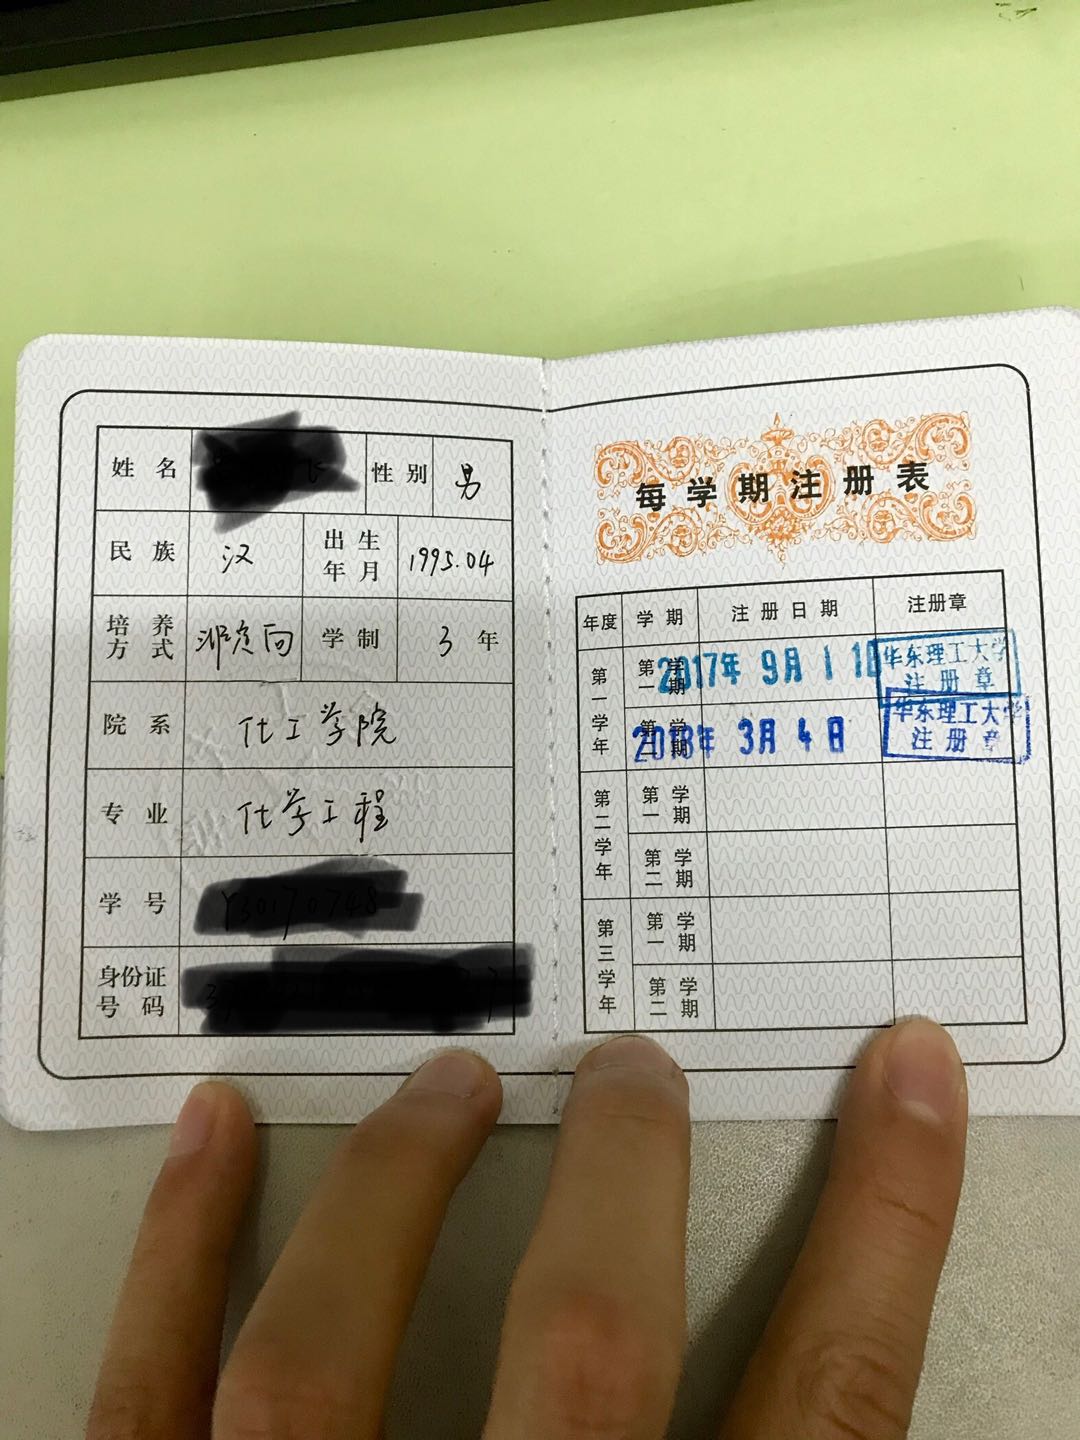 姓 名
性 别 男
民 族 汉
出 生
年 月
1995.04
培 养
方 式
非定向
学 制 3 年
院 系 化工学院
专 业 化学工程
学 号
身份证
号 码
每学期注册表
年度 学 期 注 册 日 期 注册章
第一学年
第一学期 2017年 9月 1 1日 华东理工大学
注 册 章
第二学期 2018年 3月 4日 华东理工大学
注 册 章
第二学年
第一学期
第二学期
第三学年
第一学期
第二学期